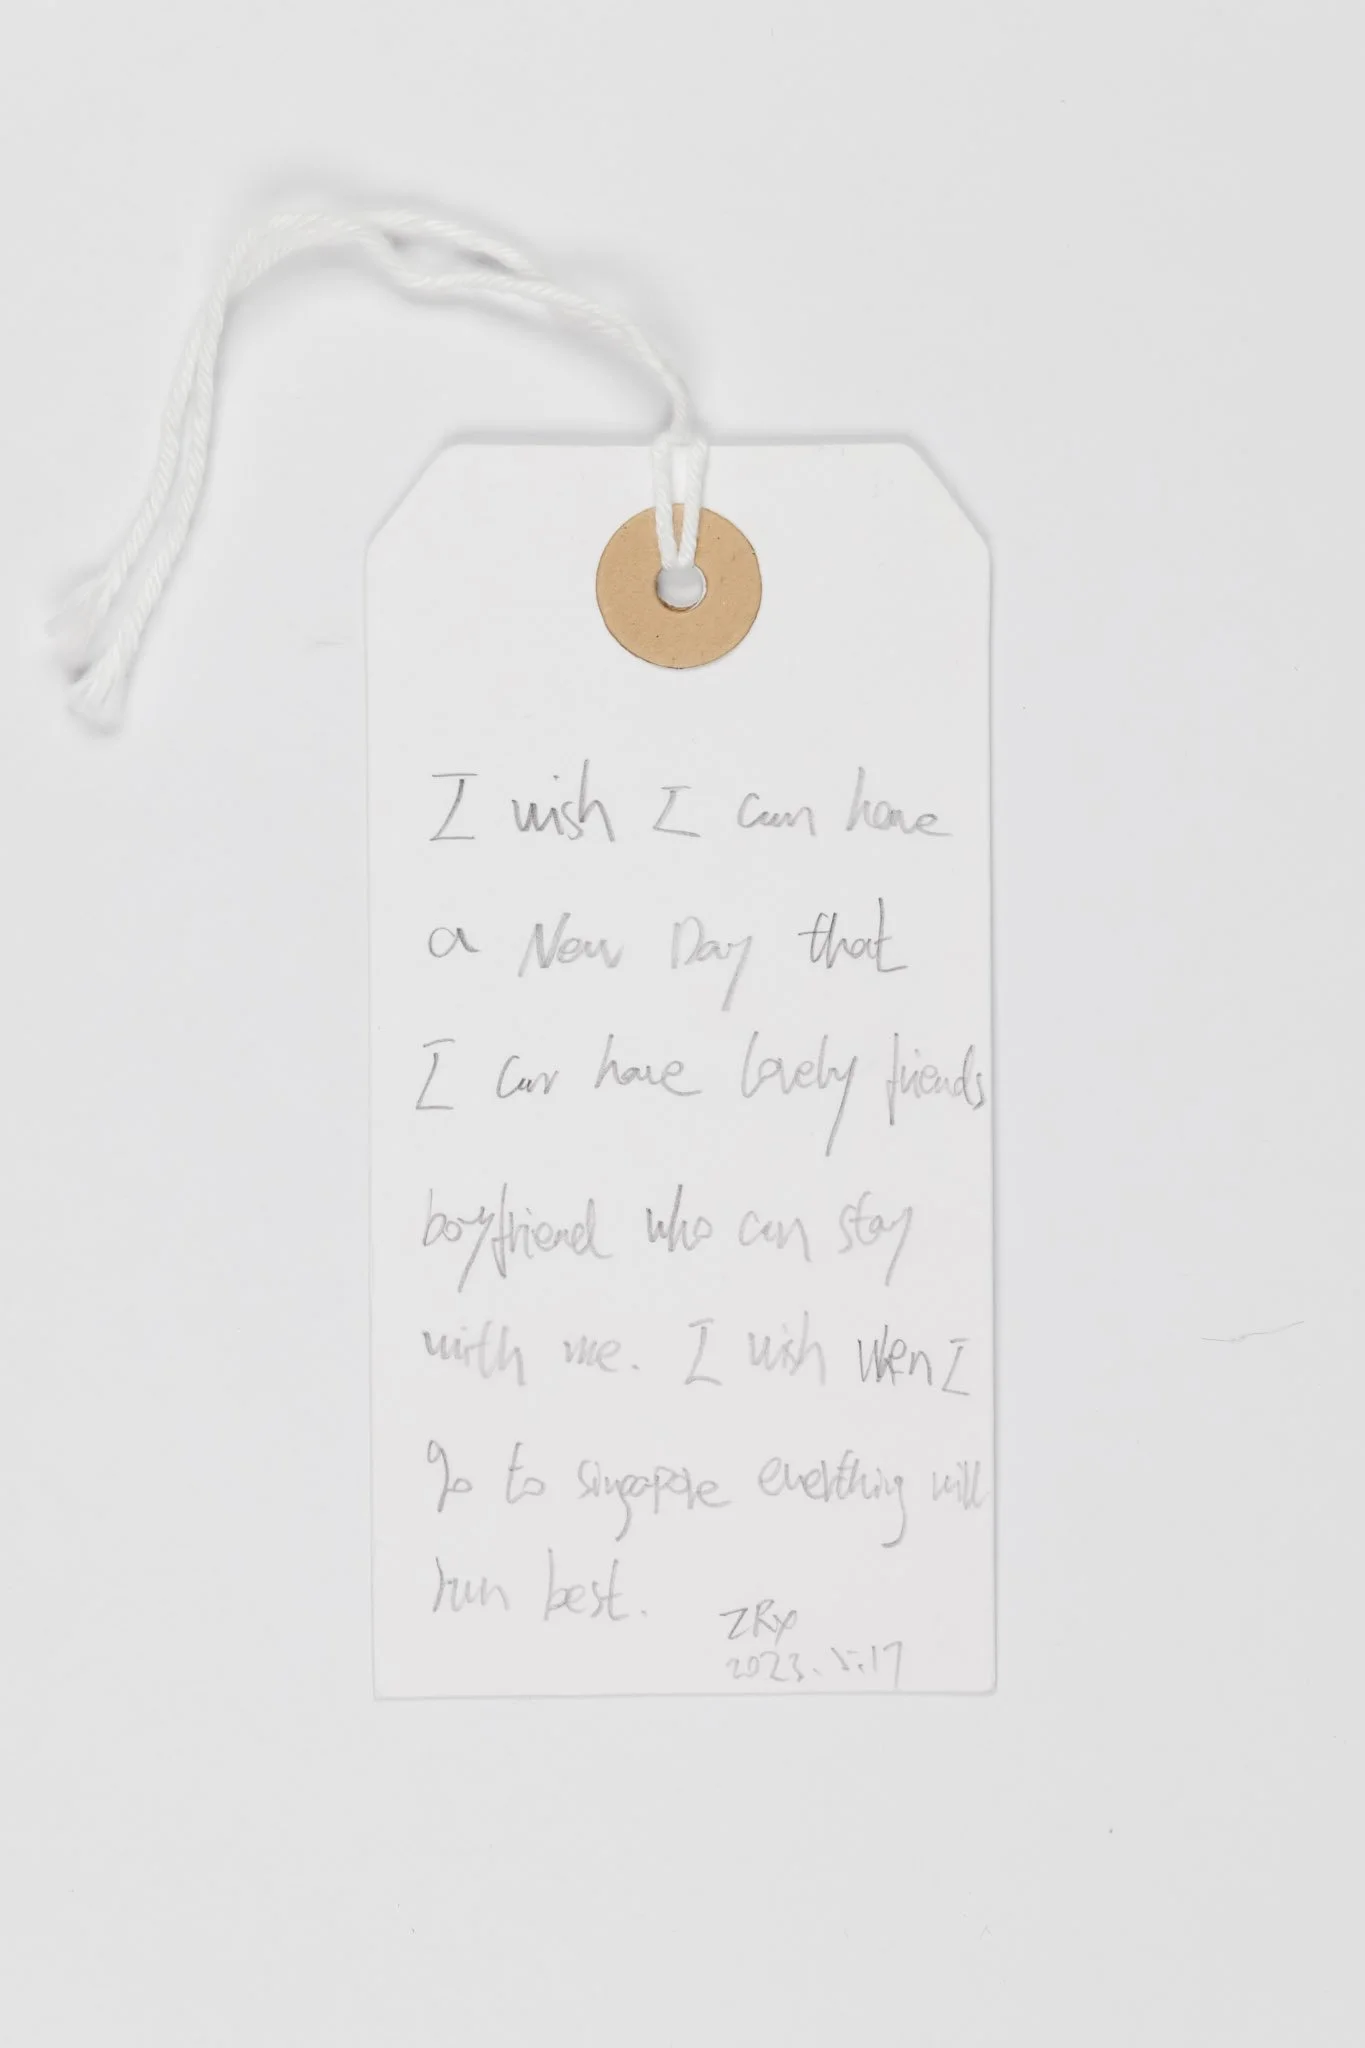 I wish I can have
a New Day that
I can have lovely friends
boyfriend who can stay
with me. I wish when I
go to singapore everthing will
run best.
ZRy
2023.5.17